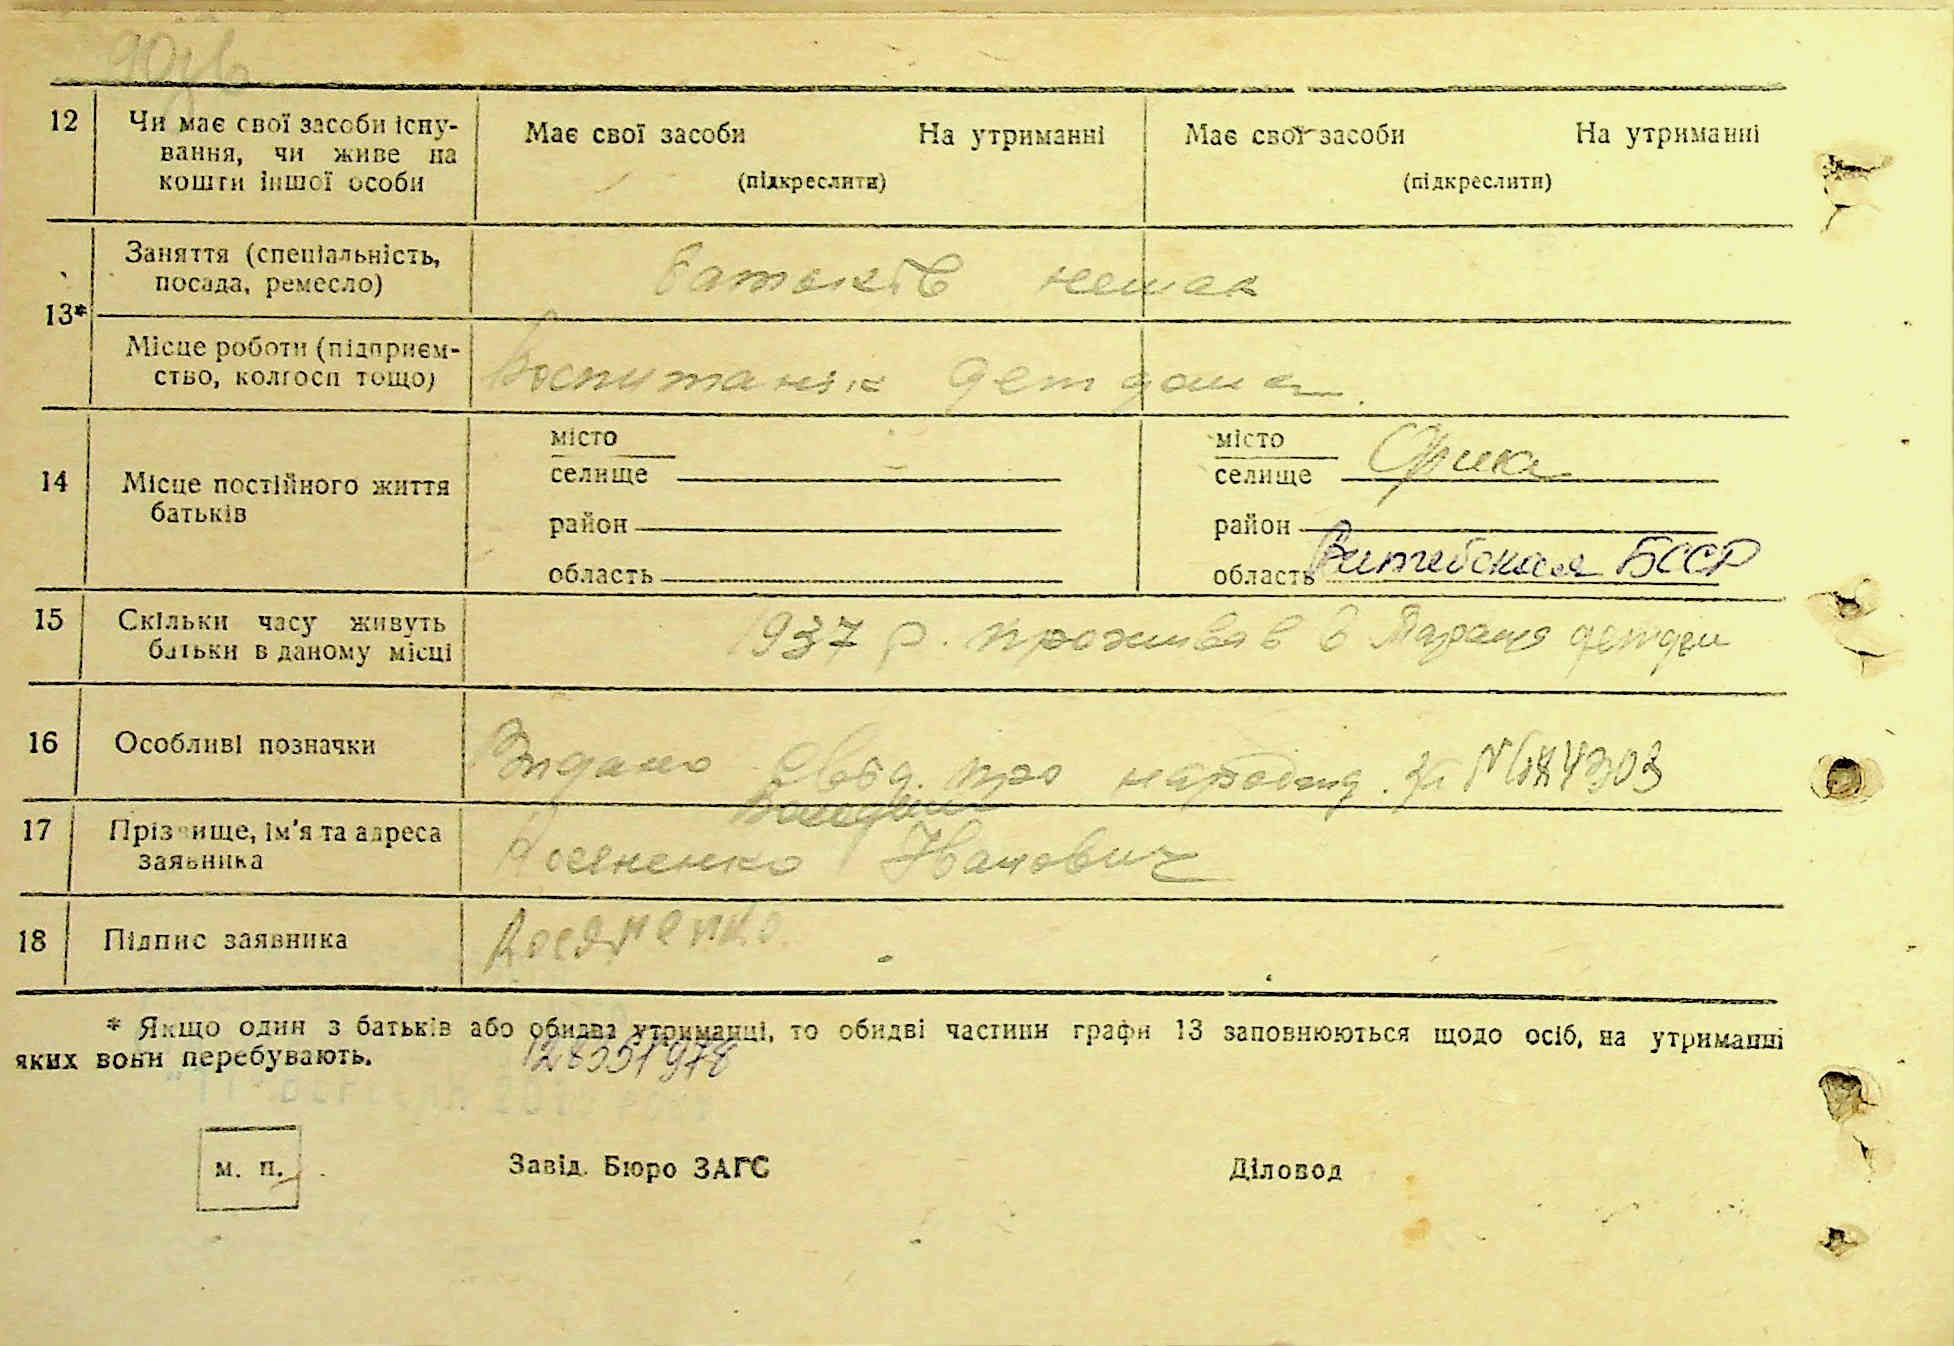 12 Чи має свої засоби існу-
вання, чи живе на
кошти іншої особи
Має свої засоби На утриманні
(підкреслити)
Має свої засоби На утриманні
(підкреслити)
13* Заняття (спеціальність,
посада, ремесло)
батьків немає
Місце роботи (підприєм-
ство, колгосп тощо)
Воспитанік детдома.
14 Місце постійного життя
батьків
місто
селище
район
область
місто
селище Орша
район
область Витебская БССР
15 Скільки часу живуть
батьки в даному місці
1937 р. проживав в
16 Особливі позначки
Видано свід. про народж. за №
17 Прізвище, ім'я та адреса
заявника
Іванович
18 Підпис заявника
* Якщо один з батьків або обидва утриманці, то обидві частини графи 13 заповнюються щодо осіб, на утриманні
яких вони перебувають.
128551978
м. п.
Завід. Бюро ЗАГС
Діловод